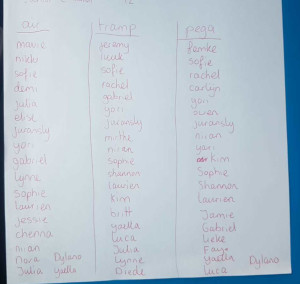 tramp
pega
mavie
jeremy
femke
nikki
luuk
sofie
sofie
sofie
rachel
demi
rachel
carlijn
julia
gabriel
yori
elise
yori
owen
juransly
juransly
juransly
yori
niran
gabriel
niran
yori
lynne
sophie
Kim
sophie
shannon
Sophie
laurien
laurien
Shannon
jessie
Kim
Laurien
chenna
britt
Jamie
niran
yaella
Gabriel
Nora Dylano
Luca
Lieke
Julia yaella
Julia
Faye
Lynne
yaella Dylano
Luca